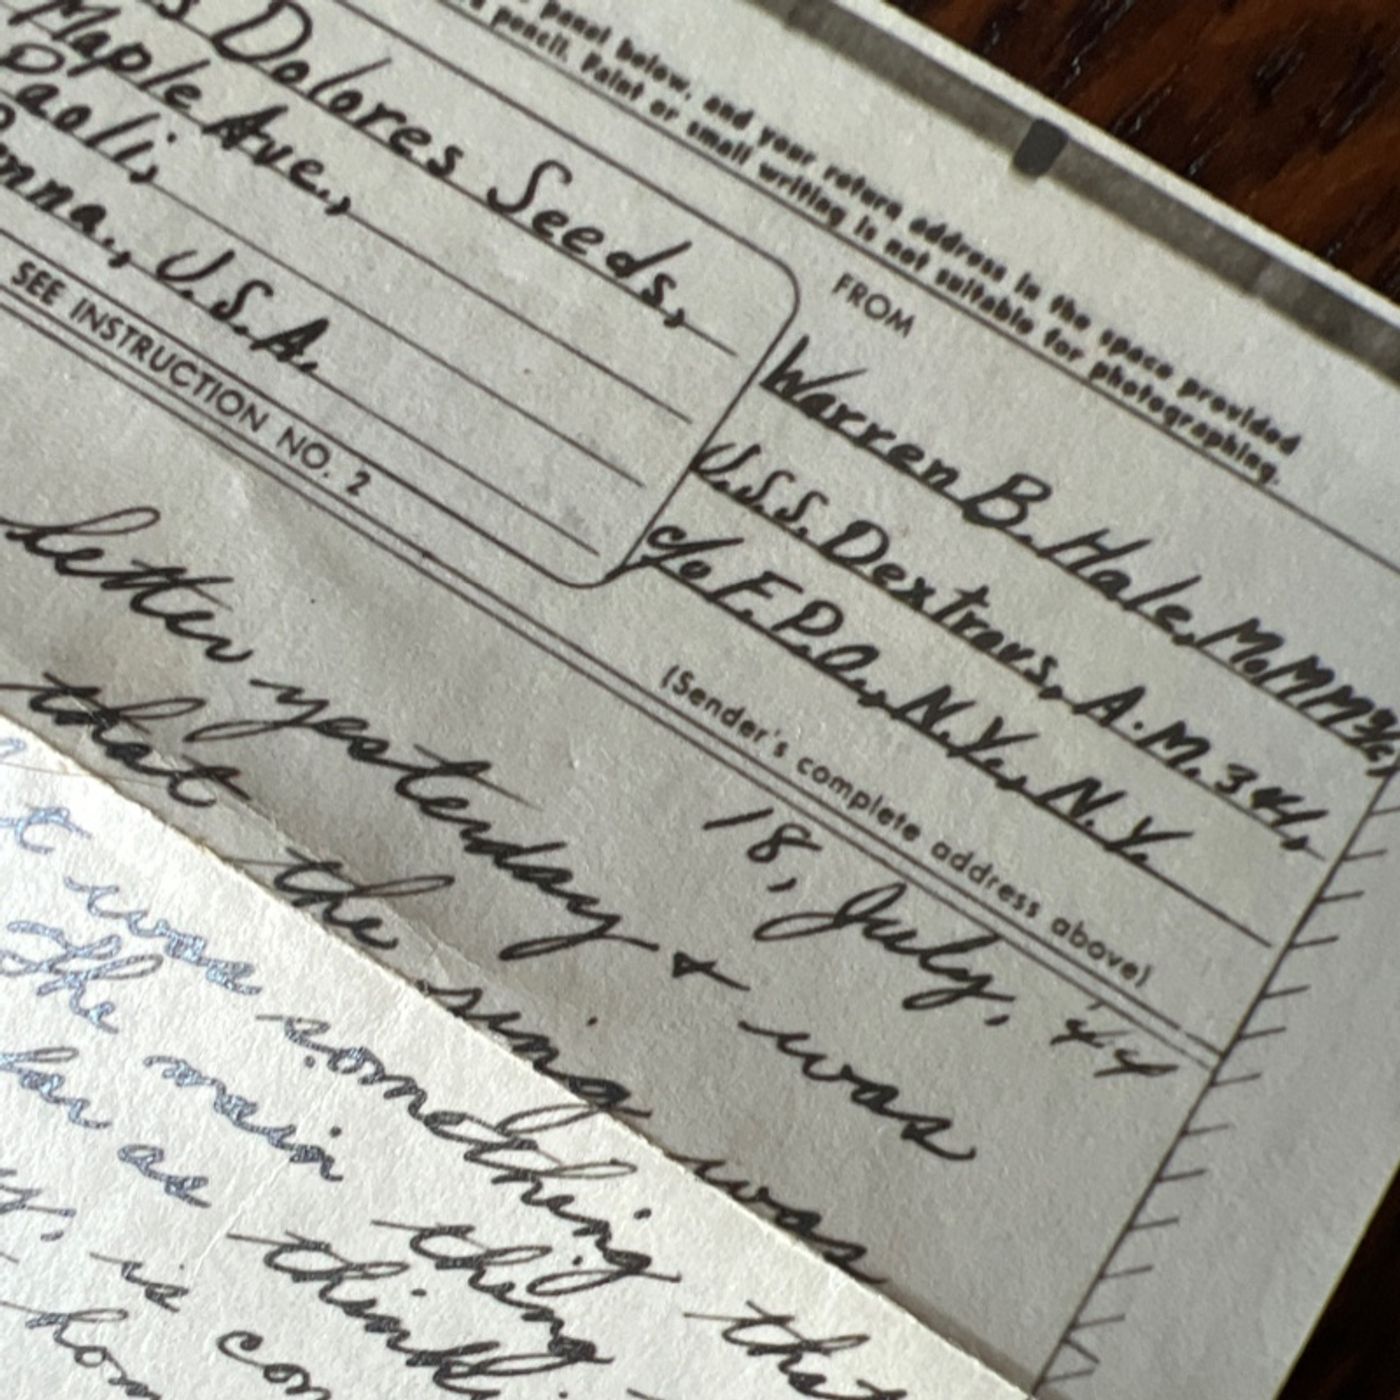 panel below, and your return address in the space provided
pencil. Faint or small writing is not suitable for photographing.
Dolores Seeds,
Maple Ave.,
Paoli,
Penna., U.S.A.
SEE INSTRUCTION NO. 2
FROM
Warren B. Hale, M.M.M 3/c,
U.S.S. Dextrous, A.M. 341,
c/o F.P.O., N.Y., N.Y.
(Sender's complete address above)
18, July, '44
letter yesterday + was
that the ring was
t was something that
The main thing
far as think
is con
hom